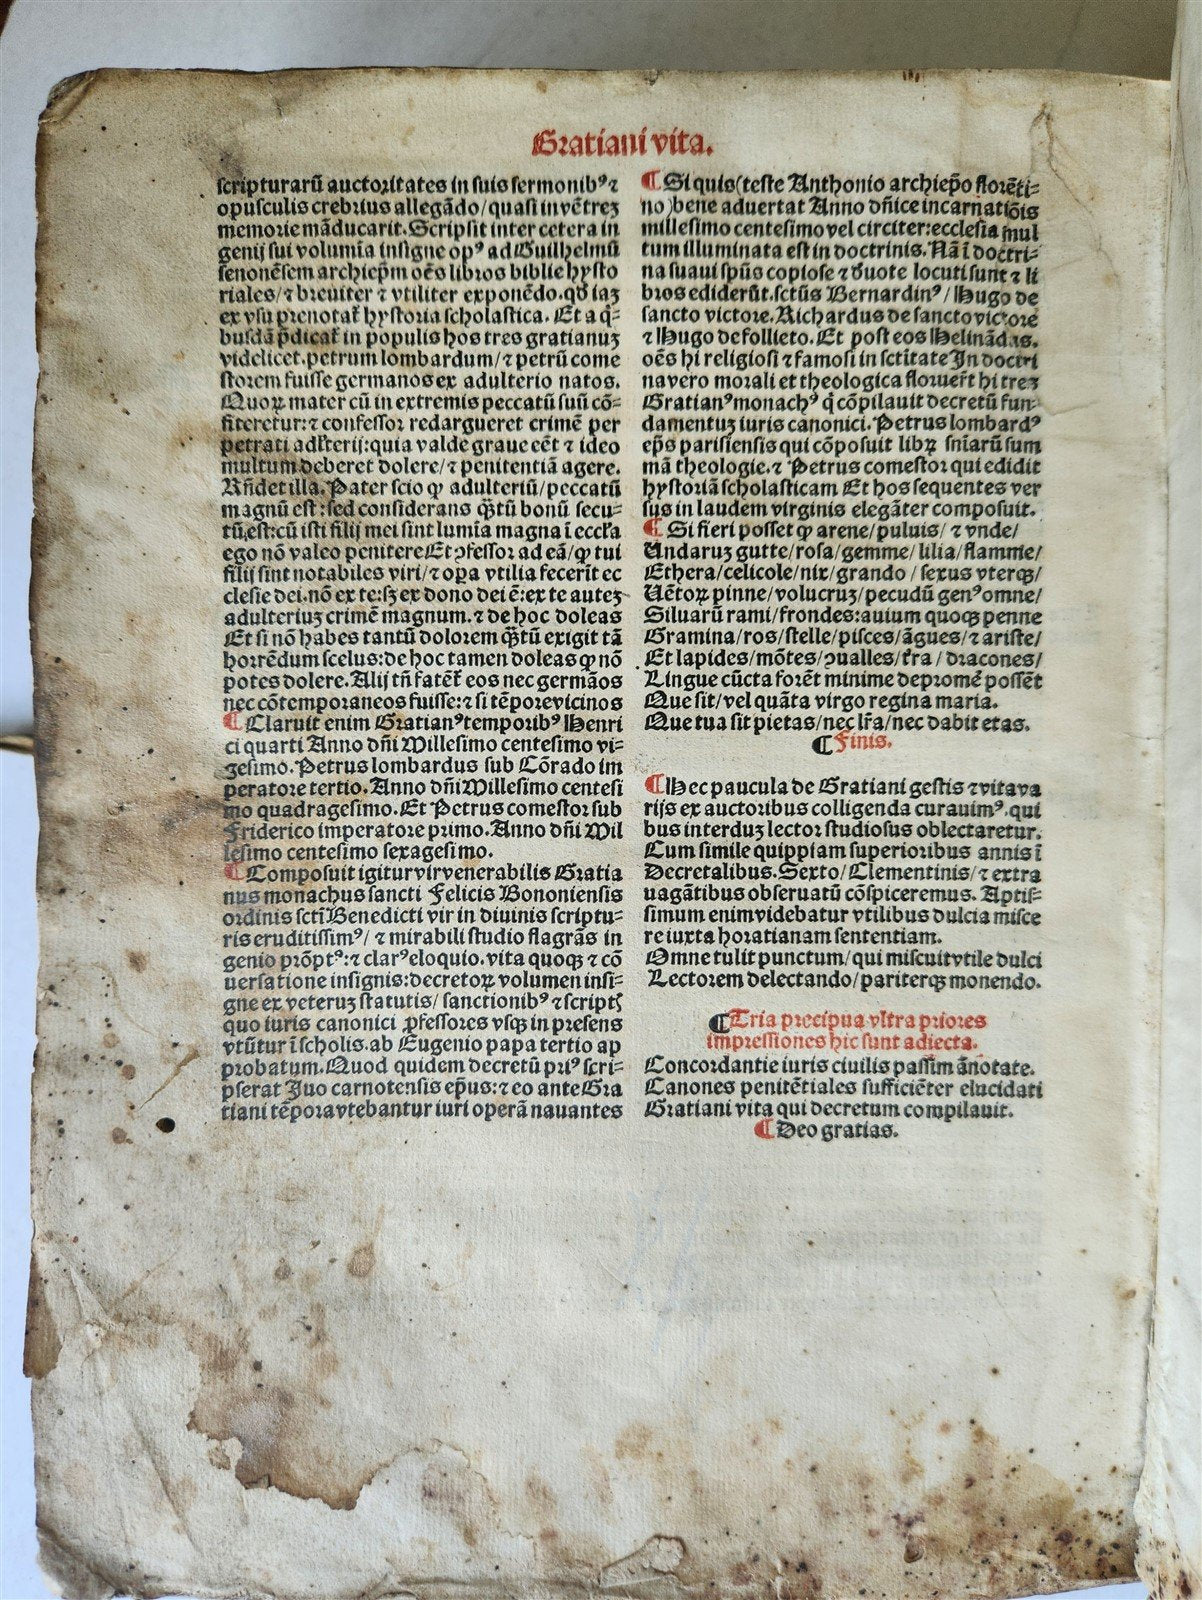 Gratiani vita.
scripturarū auctoritates in suis sermonibꝰ ⁊
opusculis crebrius allegādo/quasi in vētreꝫ
memorie māducarit. Scripsit inter cetera in
genij sui volumīa insigne opꝰ ad Guilhelmū
senonēsem archiepm̄ oēs libros biblie hysto
riales/⁊ breuiter ⁊ vtiliter exponēdo. qd̄ iaꝫ
ex vsu prenotat̄ hystoria scholastica. Et a q̇-
busdā p̄dicat̄ in populis hos tres gratianuꝫ
videlicet. petrum lombardum/⁊ petrū come
storem fuisse germanos ex adulterio natos.
Quoꝝ mater cū in extremis peccatū suū cō-
fiteretur: ⁊ confessor redargueret crimē per
petrati adl̓terij: quia valde graue eēt ⁊ ideo
multum deberet dolere/⁊ penitentiā agere.
Rn̄det illa. Pater scio ꝙ adulteriū/peccatū
magnū est: sed considerans q̄tū bonū secu-
tū est: cū isti filij mei sint lumīa magna ī eccl̓a
ego nō valeo penitere Et ɔfessor ad eā/ꝙ tui
filij sint notabiles viri/⁊ oꝑa vtilia fecerīt ec
clesie dei. nō ex te: sꝫ ex dono dei ē: ex te auteꝫ
adulteriuꝫ crimē magnum. ⁊ de hoc doleas
Et si nō habes tantū dolorem q̄tū exigit tā
horrēdum scelus: de hoc tamen doleas ꝙ nō
potes dolere. Alij tn̄ fatēt̄ eos nec germāos
nec cōtemporaneos fuisse: ⁊ si tēpore vicinos
¶ Claruit enim Gratianꝰ temporibꝰ Henri
ci quarti Anno dn̄i Millesimo centesimo vi-
gesimo. Petrus lombardus sub Cōrado im
peratore tertio. Anno dn̄i Millesimo centesi
mo quadragesimo. Et Petrus comestor sub
Friderico imperatore primo. Anno dn̄i Mil
lesimo centesimo sexagesimo.
¶ Composuit igitur vir venerabilis Gratia
nus monachus sancti Felicis Bononiensis
ordinis sctī Benedicti vir in diuinis scriptu-
ris eruditissimꝰ/ ⁊ mirabili studio flagrās in
genio prōptꝰ: ⁊ clarꝰ eloquio. vita quoqꝫ ⁊ cō
uersatione insignis: decretoꝝ volumen insi-
gne ex veteruꝫ statutis/ sanctionibꝰ ⁊ scriptꝭ
quo iuris canonici ꝓfessores vsqꝫ in presens
vtūtur ī scholis. ab Eugenio papa tertio ap
probatum. Quod quidem decretū priꝰ scri-
pserat Juo carnotensis ep̄us: ⁊ eo ante Gra
tiani tēpora vtebantur iuri operā nauantes
¶ Si quis (teste Anthonio archiep̄o florēti-
no) bene aduertat Anno dn̄ice incarnatiōis
millesimo centesimo vel circiter: ecclesia mul
tum illuminata est in doctrinis. Nā ī doctri-
na suaui sp̄us copiose ⁊ d̄uote locuti sunt ⁊ li
bros ediderūt. sctūs Bernardinꝰ/Hugo de
sancto victore. Richardus de sancto victore
⁊ Hugo de follieto. Et post eos Helinādus.
oēs hi religiosi ⁊ famosi in sctītate In doctri
na vero morali et theologica floruer̄t hi treꝫ
Gratianꝰ monachꝰ q̇ cōpilauit decretū fun-
damentuꝫ iuris canonici. Petrus lombardꝰ
ep̄s parisiensis qui cōposuit libꝝ sn̄iarū sum
mā theologie. ⁊ Petrus comestor qui edidit
hystoriā scholasticam Et hos sequentes ver
sus in laudem virginis elegāter composuit.
¶ Si fieri posset ꝙ arene/puluis/ ⁊ vnde/
Undaruꝫ gutte/rosa/gemme/lilia/flamme/
Ethera/celicole/nix/grando/ sexus vterqꝫ/
Uētoꝝ pinne/volucruꝫ/pecudū genꝰ omne/
Siluarū rami/frondes: auium quoqꝫ penne
Gramina/ros/stelle/pisces/āgues/⁊ ariste/
Et lapides/mōtes/ɔualles/t̄ra/ dracones/
Lingue cūcta forēt minime depromē possēt
Que sit/vel quāta virgo regina maria.
Que tua sit pietas/nec lr̄a/nec dabit etas.
¶ Finis.
¶ Hec paucula de Gratiani gestis ⁊ vita va
rijs ex auctoribus colligenda curauimꝰ. qui
bus interduꝫ lector studiosus oblectaretur.
Cum simile quippiam superioribus annis ī
Decretalibus. Sexto/Clementinis/⁊ extra
uagātibus obseruatū cōspiceremus. Aptis-
simum enim videbatur vtilibus dulcia misce
re iuxta horatianam sententiam.
Omne tulit punctum/qui miscuit vtile dulci
Lectorem delectando/pariterqꝫ monendo.
¶ Tria precipua vltra priores
impressiones hic sunt adiecta.
Concordantie iuris ciuilis passim ānotate.
Canones penitētiales sufficiēter elucidati
Gratiani vita qui decretum compilauit.
¶ Deo gratias.